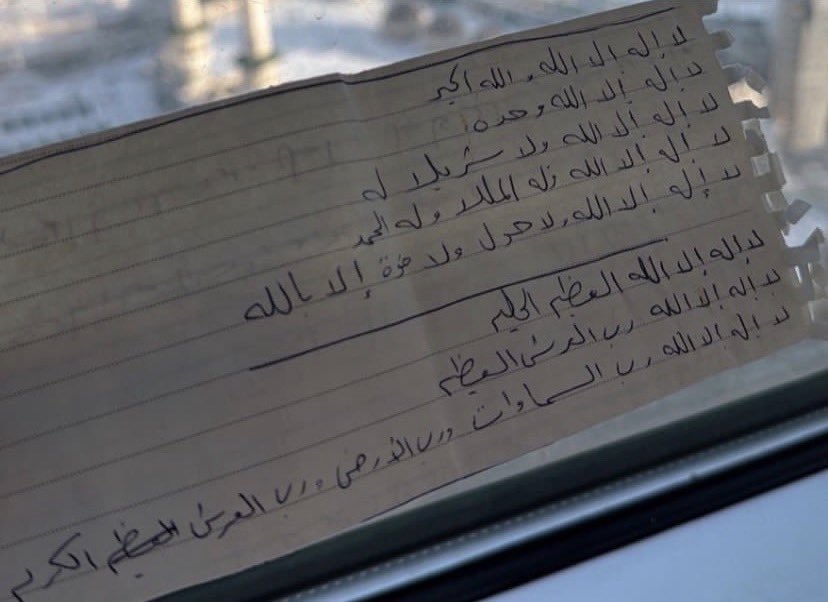 لا إله إلا الله والله أكبر
لا إله إلا الله وحده
لا إله إلا الله ولا شريك له
لا إله إلا الله له الملك وله الحمد
لا إله إلا الله ولا حول ولا قوة إلا بالله
لا إله إلا الله العظيم الحليم
لا إله إلا الله رب العرش العظيم
لا إله إلا الله رب السماوات ورب الأرض ورب العرش الكريم